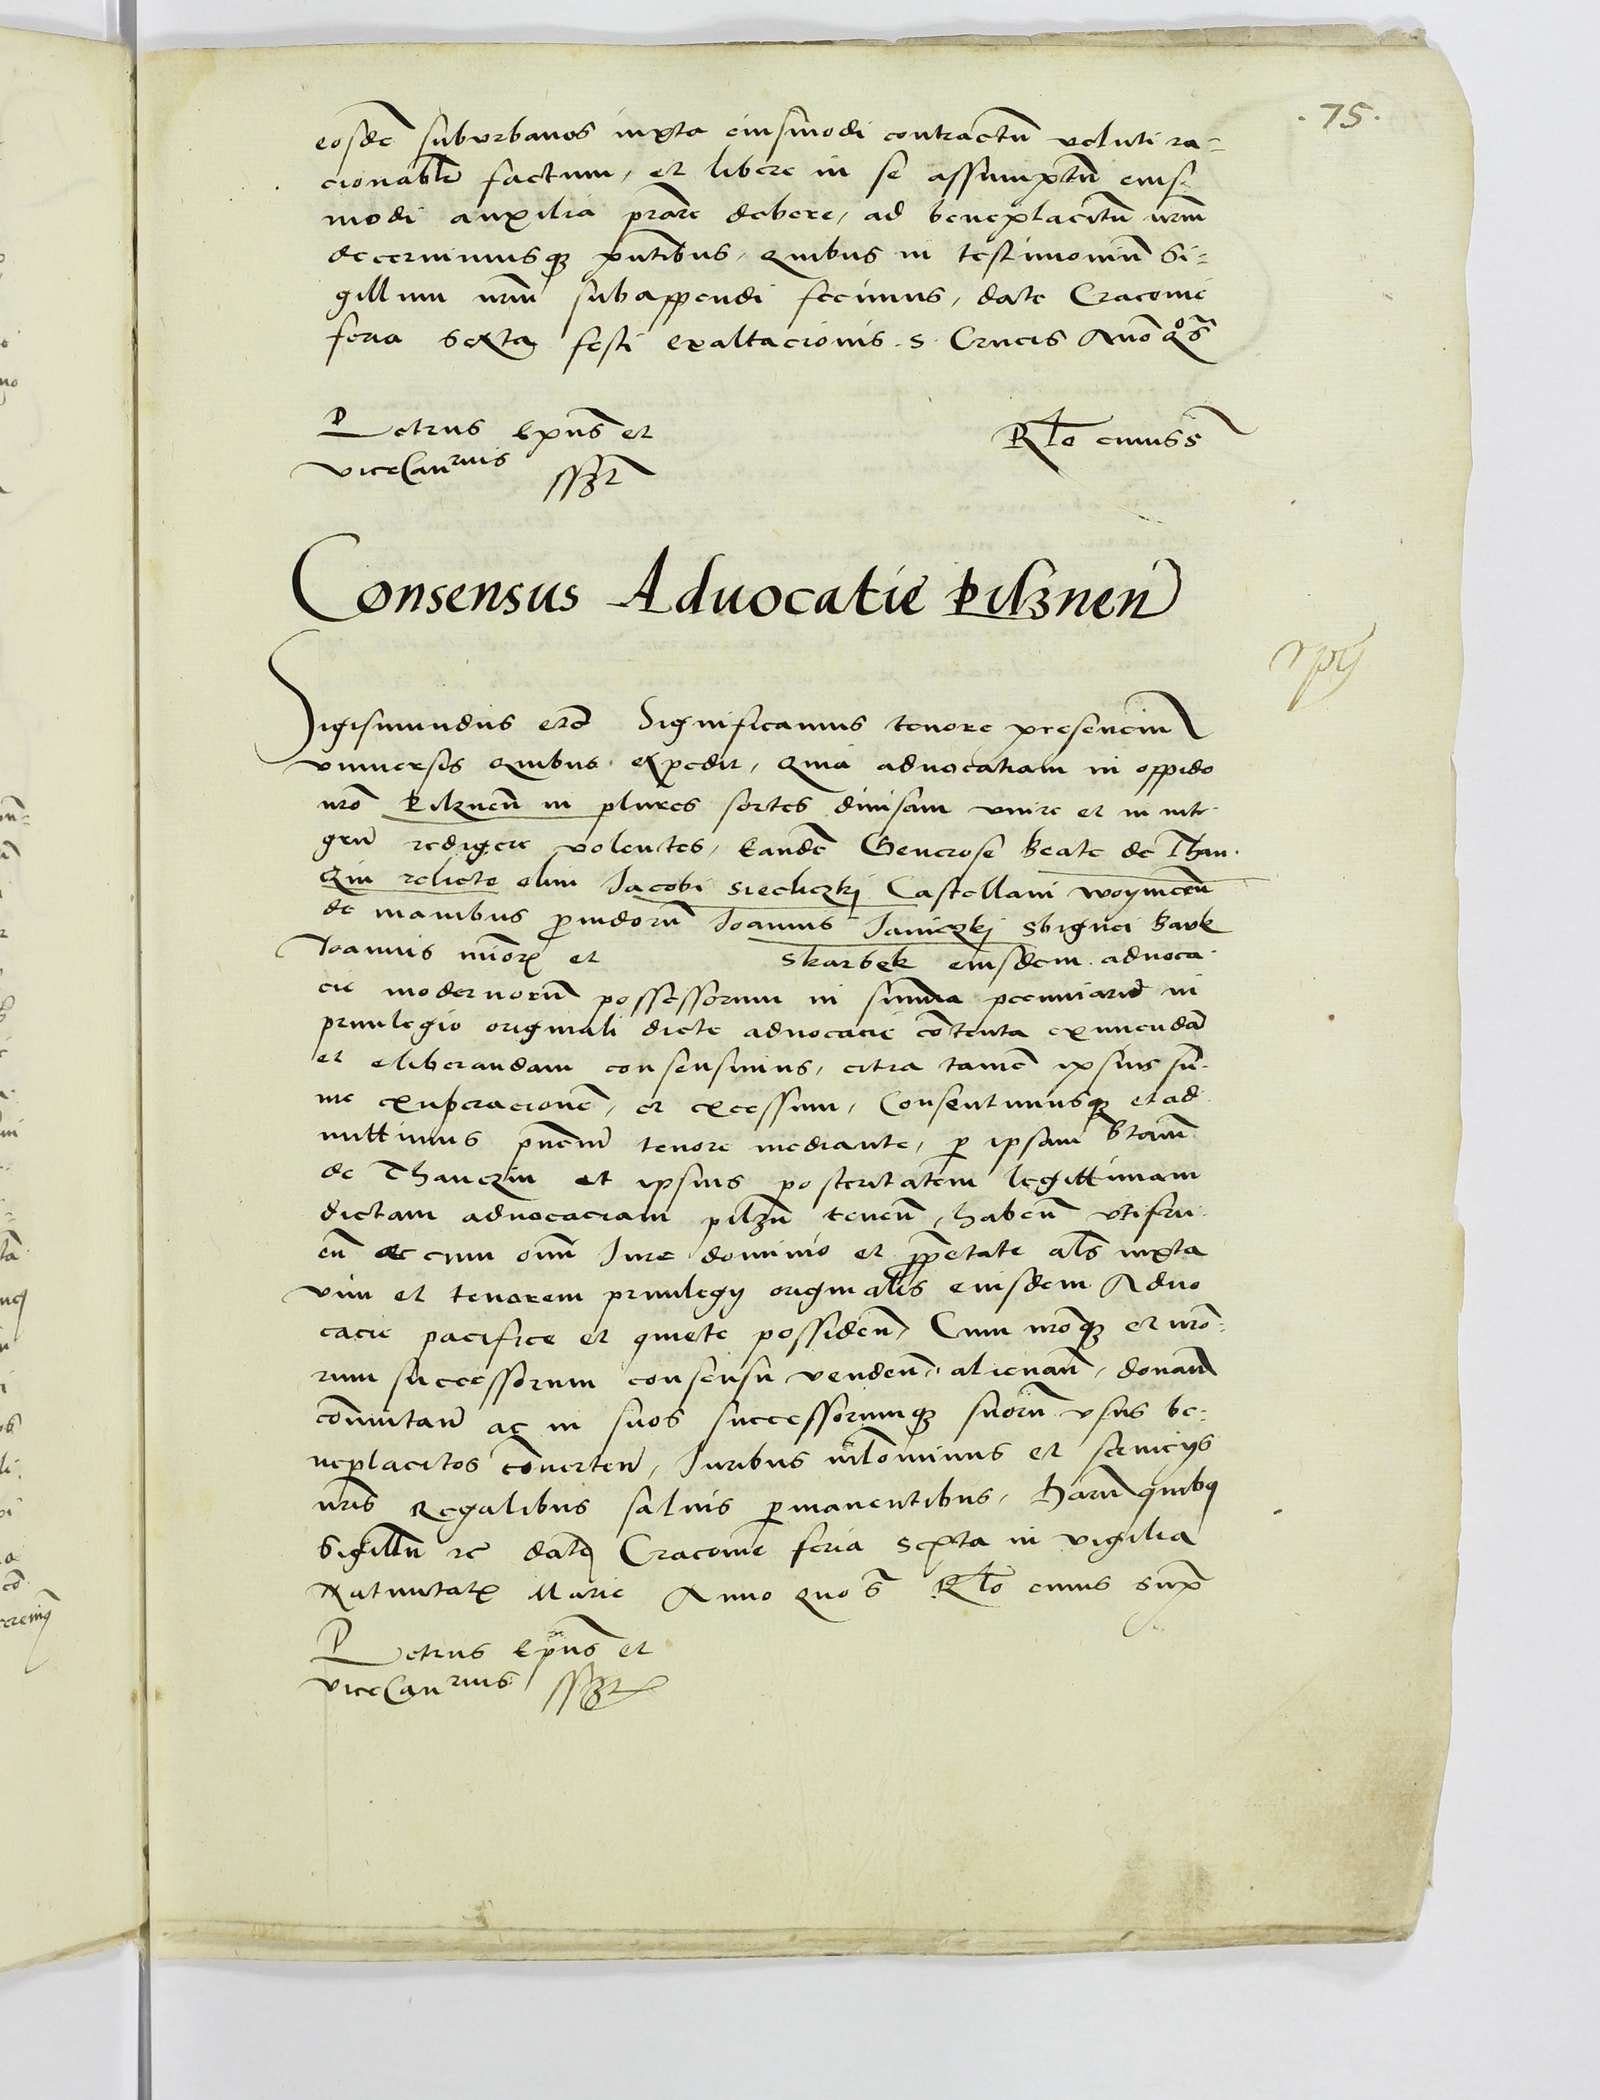 .75.
eosdē suburbanos iuxta eiusmodi contractū veluti ra-
cionablr̄ factum, et libere in se assumptū eius-
modi auxilia prāre debere, ad beneplacitū nrm̄
decernimusqȝ pn̄tibus, Quibus in testimoniū Si-
gillum nrm̄ subappendi fecimus, date Cracouie
feria sexta festi exaltacionis s. Crucis Anno qo s̄
Petrus Ep̄us et
viceCanrius sszt
Rlto cuiuss̄
Consensus Aduocatie Pilznen̄
Sigismundus etc̄ Significamus tenore presencium
vniuersis Quibus expedit, Quia aduocatiam in oppido
nrō Pilznen̄ in plures sortes diuisam vnire et in inte
grū redigere volentes, Eandē Generose Beate de Than
czin relicte olim Jacobi Siecliczkj Castellani woynicen̄
de manibus prouidorū Joannis Janiczkj Sbignei Bauk
Joannis minorꝭ et Skarbek eiusdem aduoca
cie modernorū possessorum in summa pecuniaria in
priuilegio originali dicte aduocacie contenta eximendā
et eliberandam consensimus, citra tamē ipsius sū-
me exuperacionē, et excessum, Consentimusqȝ et ad
mittimus pn̄cium tenore mediante, per ipsam Beatam
de Thanczin et ipsius posteritatem legittimam
dictam aduocaciam pilzn̄ tenen̄, haben̄ vtifru
en̄ ac cum omī Jure dominio et ppetate als̄ iuxta
vim et tenorem priuilegij originalis eiusdem Aduo
cacie pacifice et quiete possiden̄, Cum nrōqȝ et nrō-
rum successorum consensu venden̄, alienan̄, donan̄
commutan̄ ac in suos successorumqȝ suorū vsus be-
neplacitos conuerten̄, Juribus nilominus et seruicijs
nrīs Regalibus saluis permanentibus, harū quibq
Sigillū rē datē Cracouie feria sexta in vigilia
Natiuitatꝭ Marie Anno quo s̄ Rlto cuius supra
Petrus Ep̄us et
viceCanrius sszt